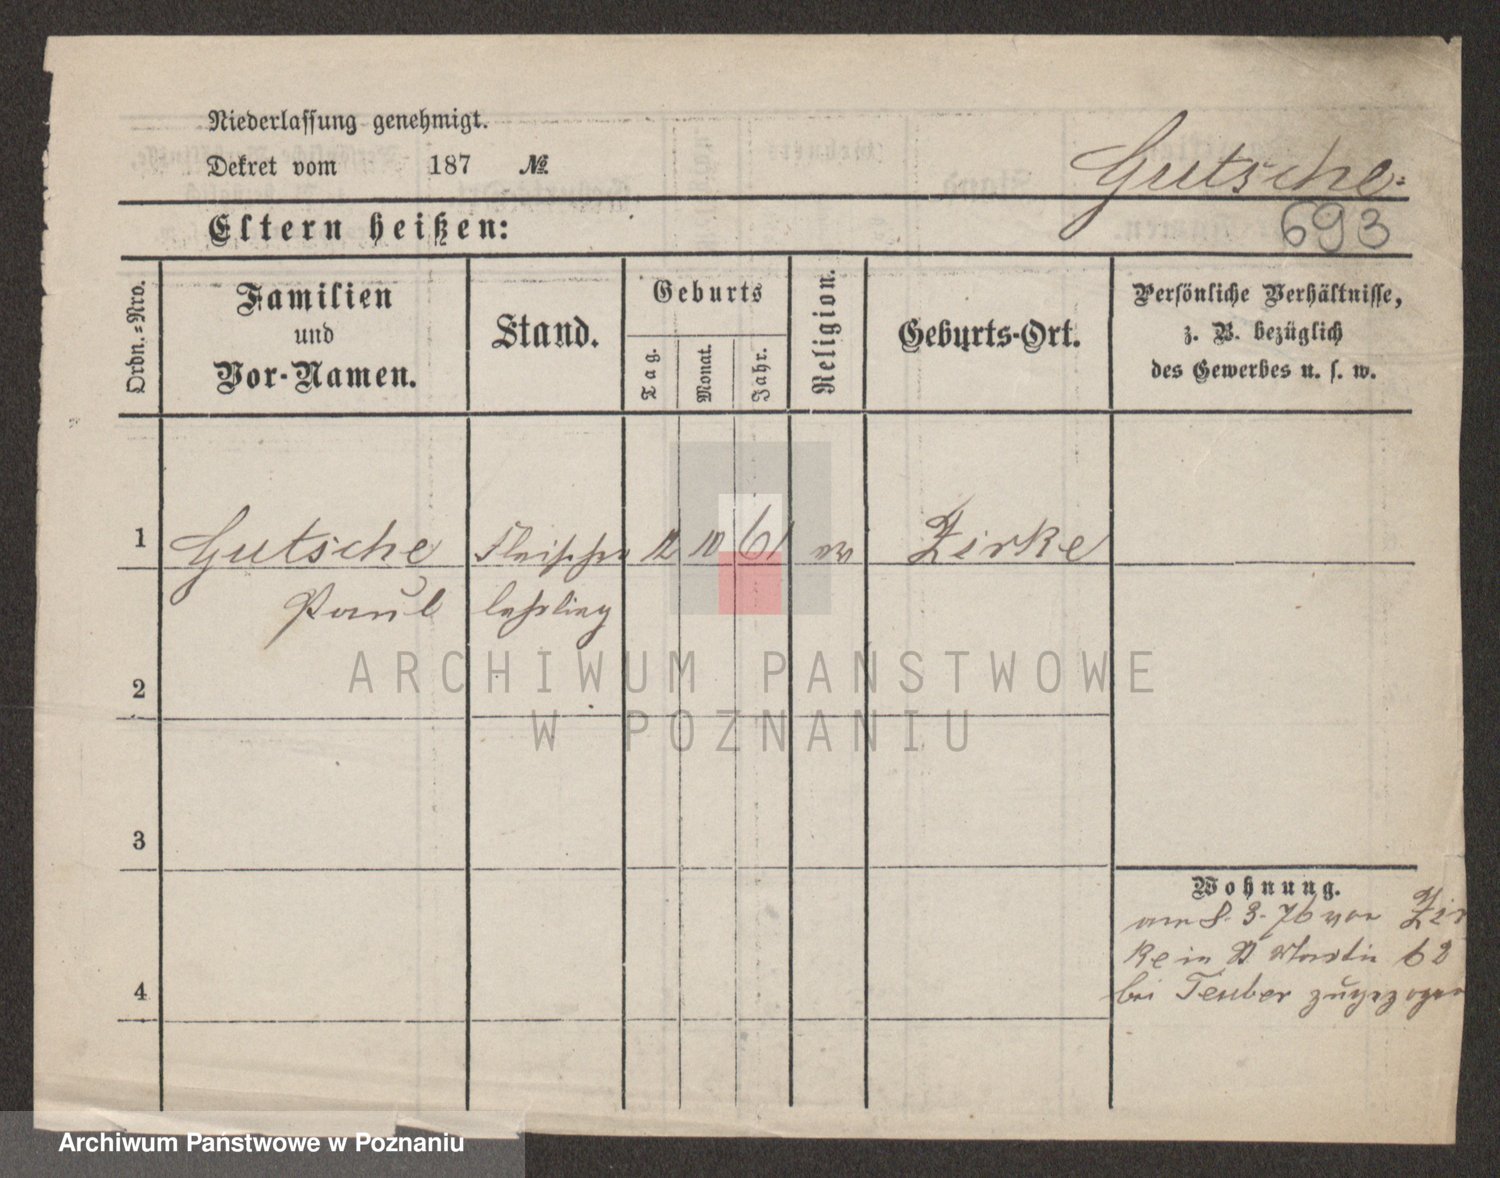 Niederlassung genehmigt.
Dekret vom 187 №
Gutsche
Eltern heißen:
693
Ordn.=Nro.
Familien
und
Vor-Namen.
Stand.
Geburts
Tag.
Monat.
Jahr.
Religion.
Geburts-Ort.
Persönliche Verhältnisse,
z. B. bezüglich
des Gewerbes u. s. w.
1 Gutsche Fleischer 12 10 61 ev Zirke
Paul lehrling
2
3
4
Wohnung.
am 8. 3. 76 von Zir
ke in St Martin 62
bei Teuber zugezogen
ARCHIWUM PAŃSTWOWE
W POZNANIU
Archiwum Państwowe w Poznaniu